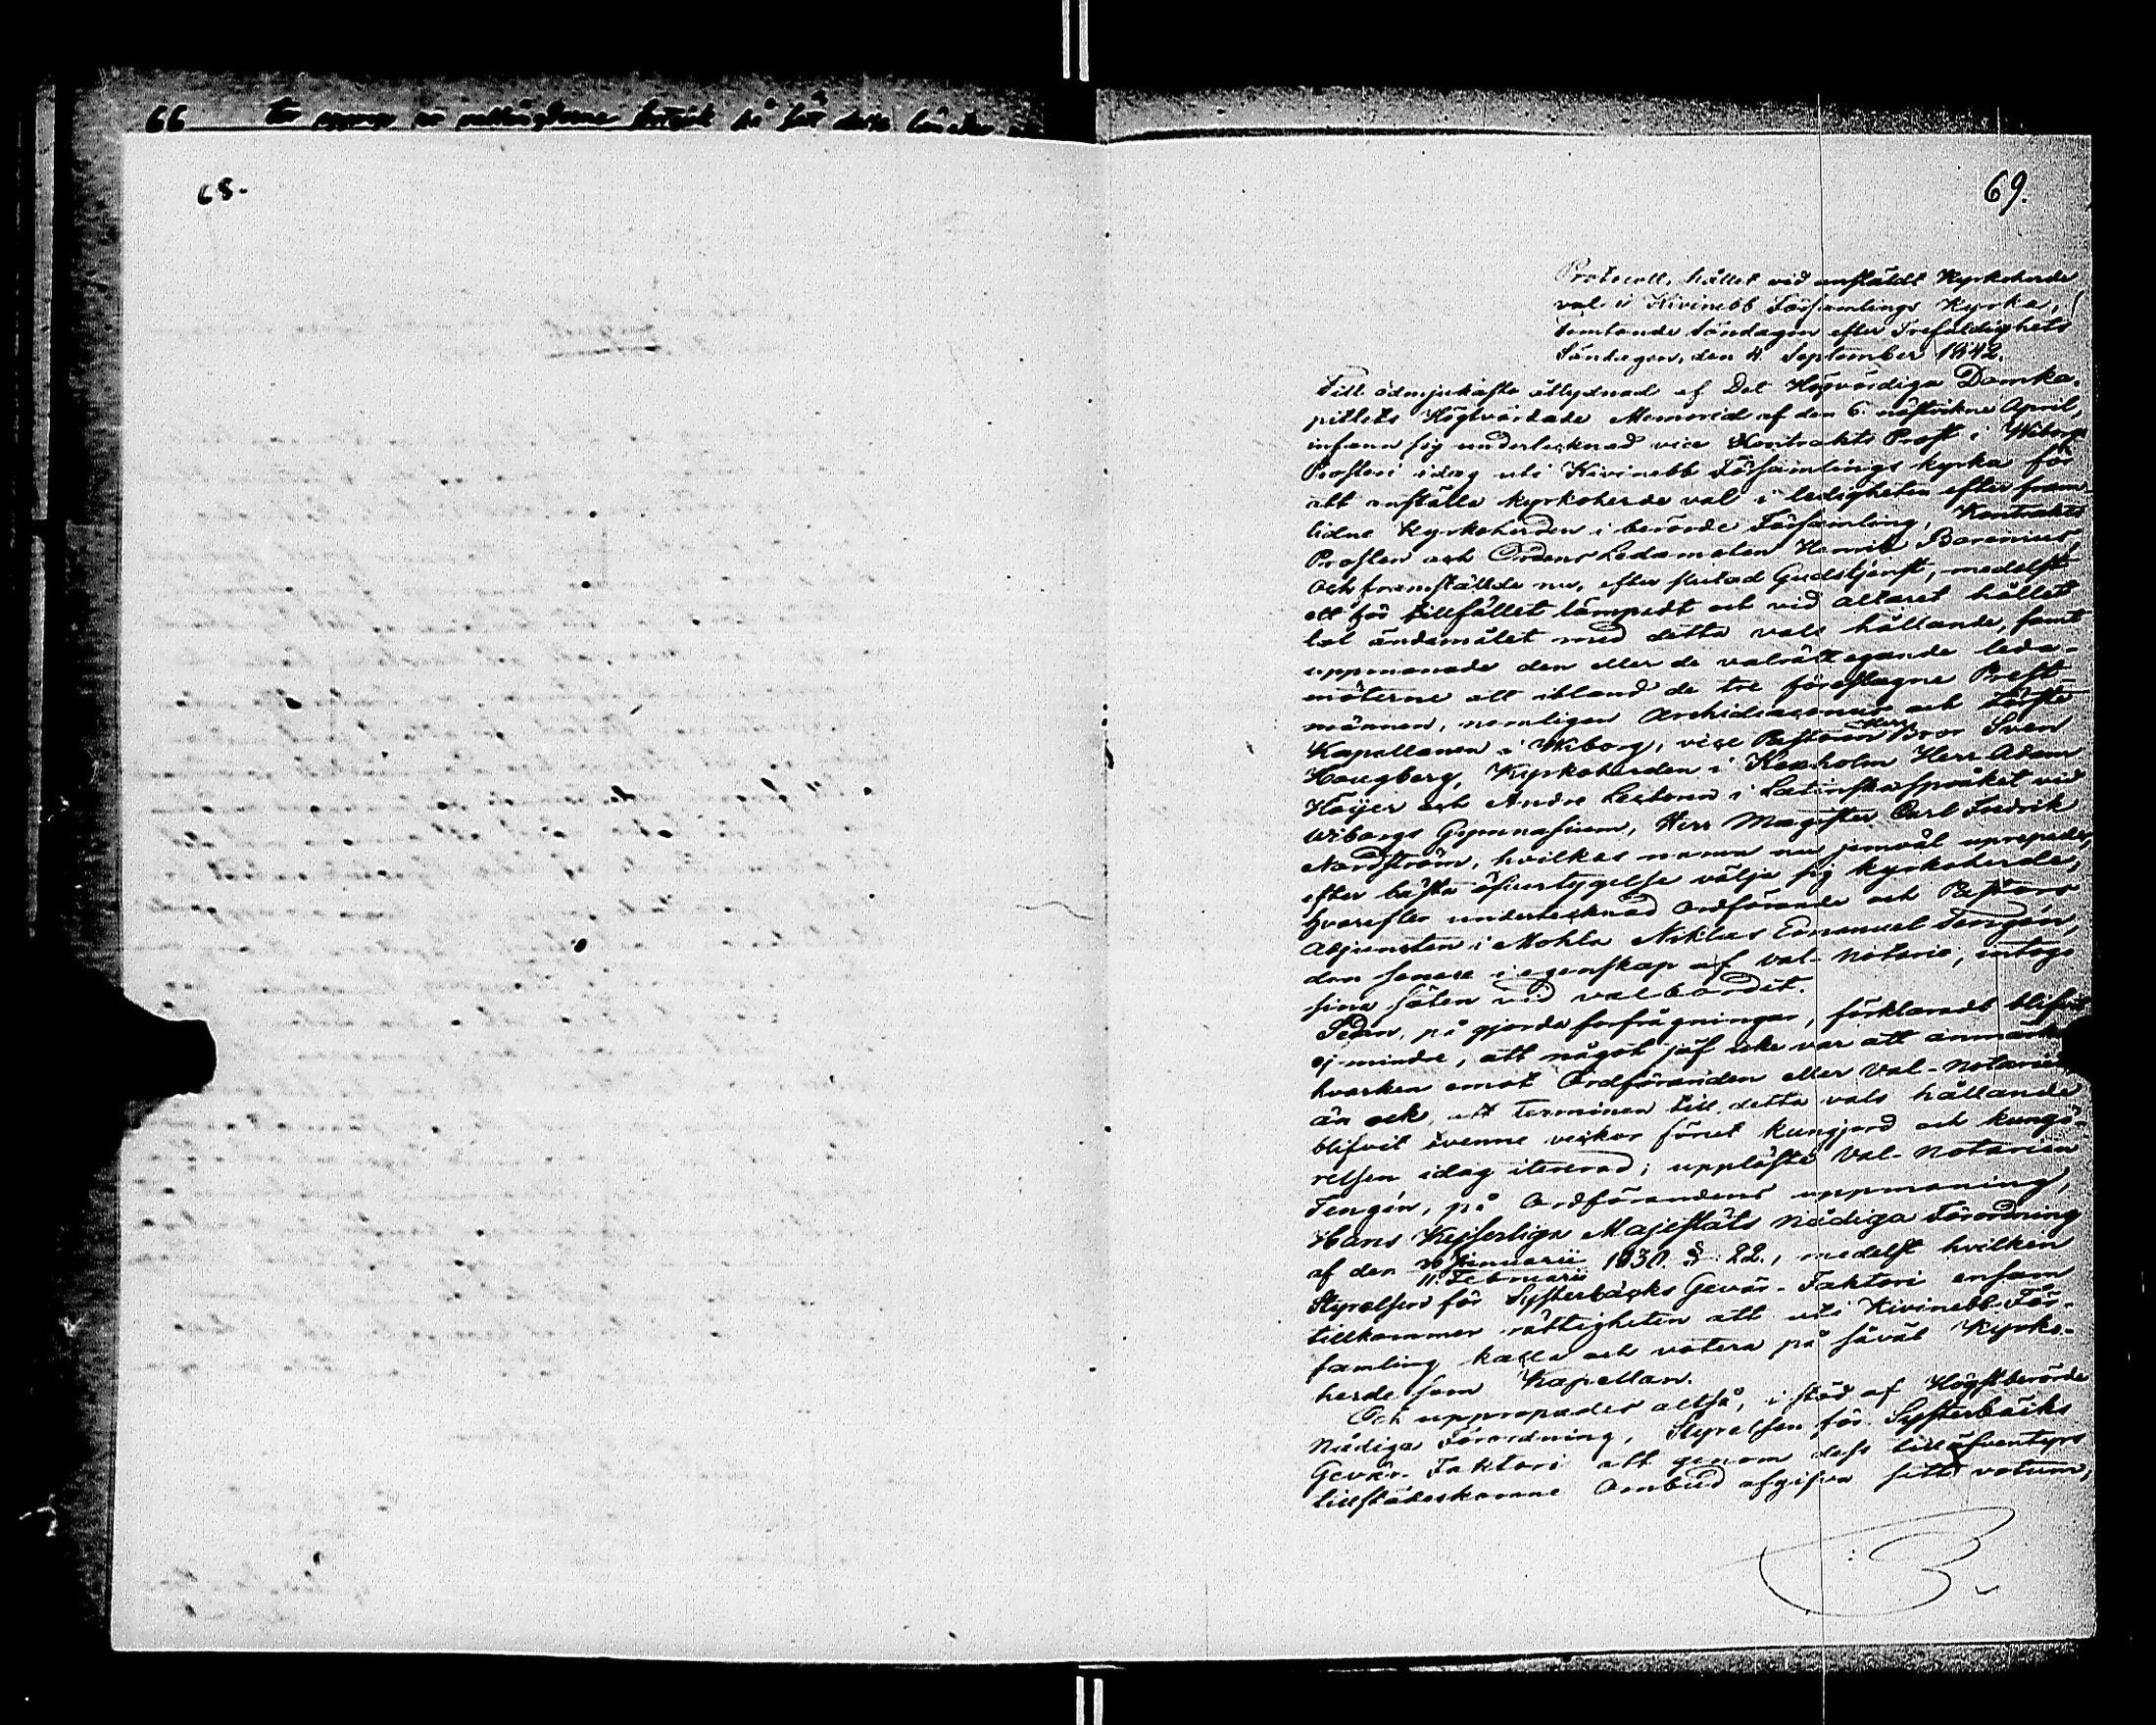 66
68.
69.
Protocoll, hållet vid anstäldt Kyrkoherde
val i Kivinebb Församlings Kyrka,
femtonde Söndagen efter Trefaldighets
Söndagen, den 4. September 1842.
Till ödmjukaste åtlydnad af Det Högvördiga Domka-
pitlets Högtvördade Memorial af den 6. nästvikne April,
infann sig undertecknad vice Kontrakts Prost i Wiborgs
Prosteri idag uti Kivinebb Församlings kyrka för
att anställa kyrkoherde val i ledigheten efter fram-
lidne Kyrkoherden i berörde Församling, Kontrakts
Prosten och Ordens Ledamoten Henrik Borenius,
Och framställde nu, efter slutad Gudstjenst, medelst
ett för tillfället lämpadt och vid altaret hållet
tal ändamålet med detta vals hållande, samt
uppmanade den eller de valrättegande leda-
möterne att ibland de tre föreslagne Prest-
männen, nemligen Archidiaconus och Förste
Kapellanen i Wiborg, vice Pastoren Herr Bror Sven
Hougberg, Kyrkoherden i Kexholm Herr Adam
Höijer och Andre Lectorn i Latinska språket vid
Wiborgs Gymnasium, Herr Magister Carl Fredrik
Nordström, hvilkas namn nu jemväl uppropades,
efter bästa öfvertygelse välja sig kyrkoherde,
hvarefter undertecknad Ordförande och Pastors
Adjuncten i Mohla Niklas Emanuel Tengén,
den senare i egenskap af val-notarie, intogo
sina säten vid valbordet.
Sedan, på gjorda förfrågningar, förklaradt blifvit
ej mindre, att något jäf icke var att anmäla
hvarken emot Ordföranden eller Val-notarien
än ock, att terminen till detta vals hållande
blifvit ävenne veckor förut kungjord och kungö-
relsen idag itererad; uppläste Val-notarien
Tengén, på Ordförandens uppmaning,
Hans Kejserliga Majestäts Nådiga Förordning
af den 30 Januarii / 11 Februarii 1830. § 22., medelst hvilken
Styrelsen för Systerbäcks Gevär-Faktori ensam
tillkommer rättigheten att uti Kivinebb För-
samling kalla och votera på såväl Kyrko-
herde som Kapellan.
Och uppropades altså, i stöd af Högstberörde
Nådiga Förordning, Styrelsen för Systerbäcks
Gevär-Faktori att genom dess tilläfventyrs
tillstädeskomne Ombud afgifva sitt votum,